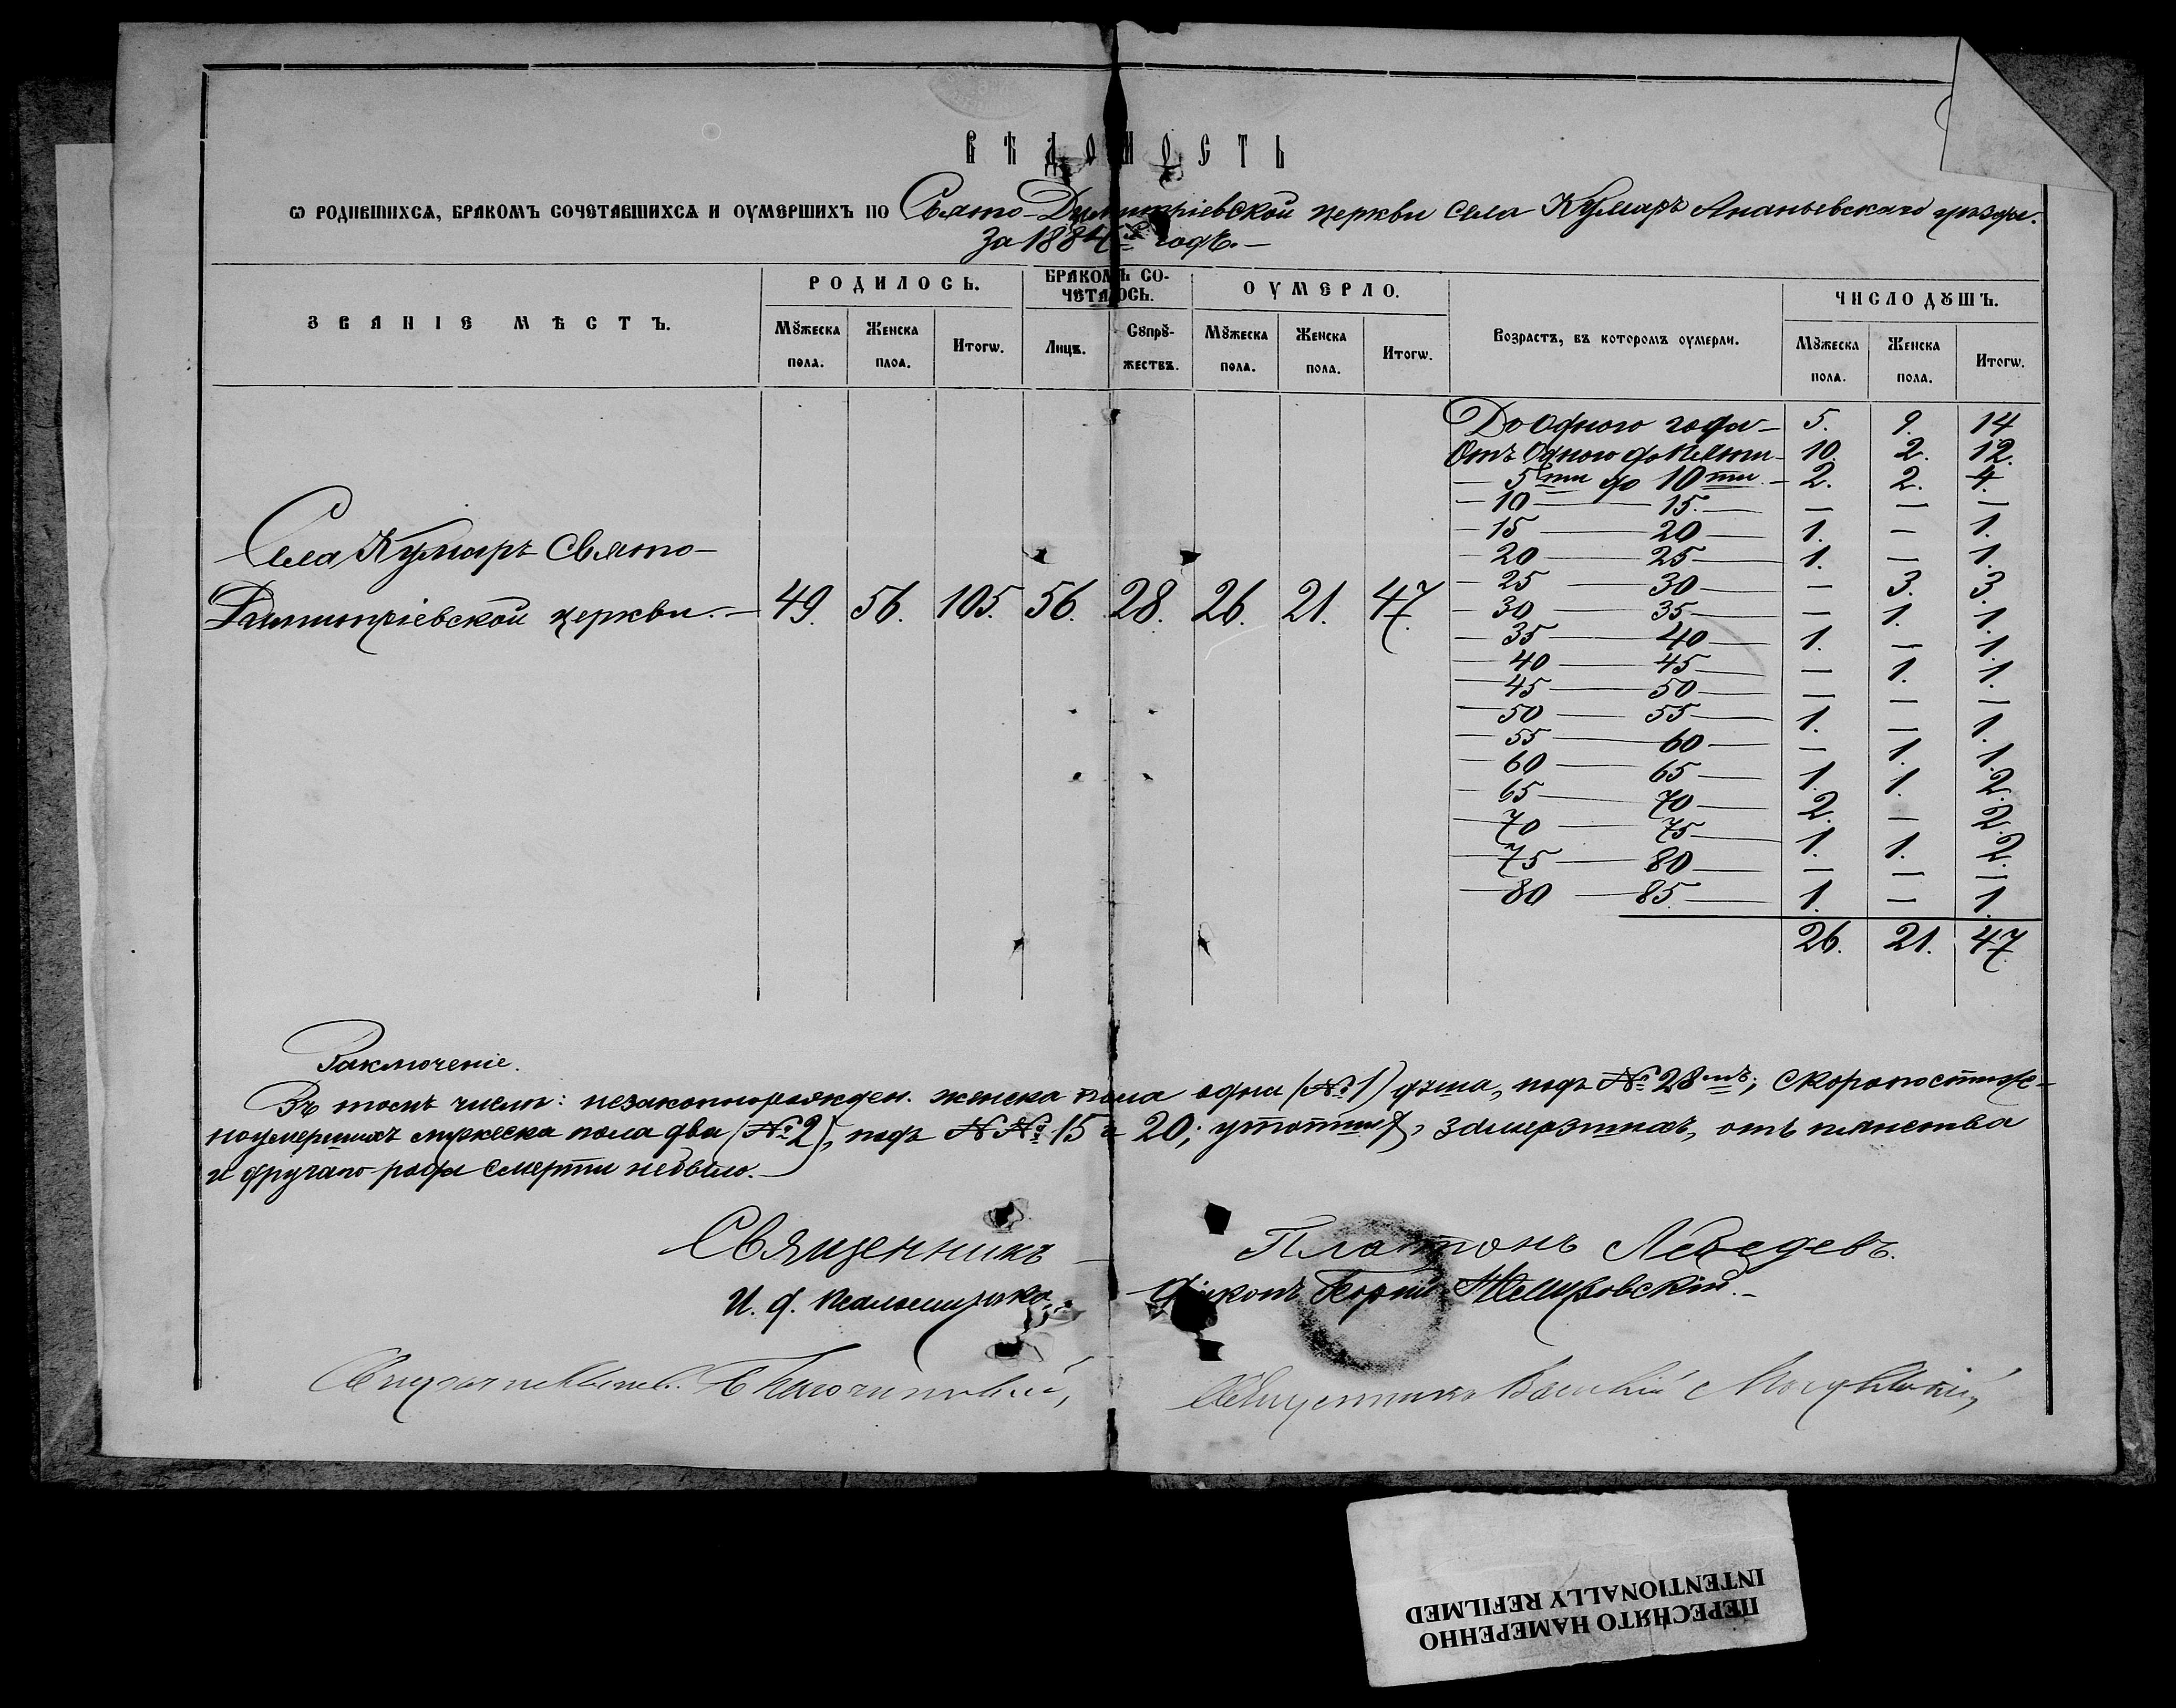 ВѢДОМОСТЬ
Ѡ РОДИВШИХСѦ, БРАКОМЪ СОЧЕТАВШИХСѦ И ОУМЕРШИХЪ ПО Свято-Димитріевской церкви села Кумаръ Ананьевскаго уѣзда.
За 1884й годъ.—
ЗВАНІЕ МѢСТЪ. РОДИЛОСЬ. БРАКОМЪ СО-ЧЕТАЛОСЬ. ОУМЕРЛО. Возрастъ, въ которомъ оумерли. ЧИСЛО ДꙊШЪ.
Мꙋжеска пола. Женска плоа. Итогѡ. Лицъ. Сꙋпрꙋ-жествъ. Мꙋжеска пола. Женска пола. Итогѡ. Мꙋжеска пола. Женска пола. Итогѡ.
До одного года — 5. 9. 14.
Отъ одного до пяти — 10. 2. 12.
— 5ти до 10ти — 2. 2. 4.
— 10 — 15. — — — —
— 15 — 20 — 1. — 1.
— 20 — 25 — 1. — 1.
— 25 — 30 — — 3. 3.
— 30 — 35 — — 1. 1.
— 35 — 40 — 1. — 1.
— 40 — 45 — — 1. 1.
— 45 — 50 — — — —
— 50 — 55 — 1. — 1.
— 55 — 60 — — 1. 1.
— 60 — 65 — 1. 1. 2.
— 65 — 70 — 2. — 2.
— 70 — 75 — 1. 1. 2.
— 75 — 80 — — — —
— 80 — 85. — 1. — 1.
26. 21. 47.
Села Кумаръ Свято-
Димитріевской церкви. — 49. 56. 105. 56. 28. 26. 21. 47.
Заключеніе.
Въ томъ числѣ: незаконнорожден. женска пола одна (№ 1) душа, подъ № 28мъ; скоропостиж-
ноумершихъ мужеска пола два (№ 2), подъ №№ 15 и 20; утопших, замерзшихъ, отъ пьянства
и другаго рода смерти небыло.—
Священникъ — Платонъ Лебедевъ.
И. д. псаломщика — Діаконъ Немировскій.—
Священникъ Василій
ПЕРЕСНЯТО НАМЕРЕННО
INTENTIONALLY REFILMED